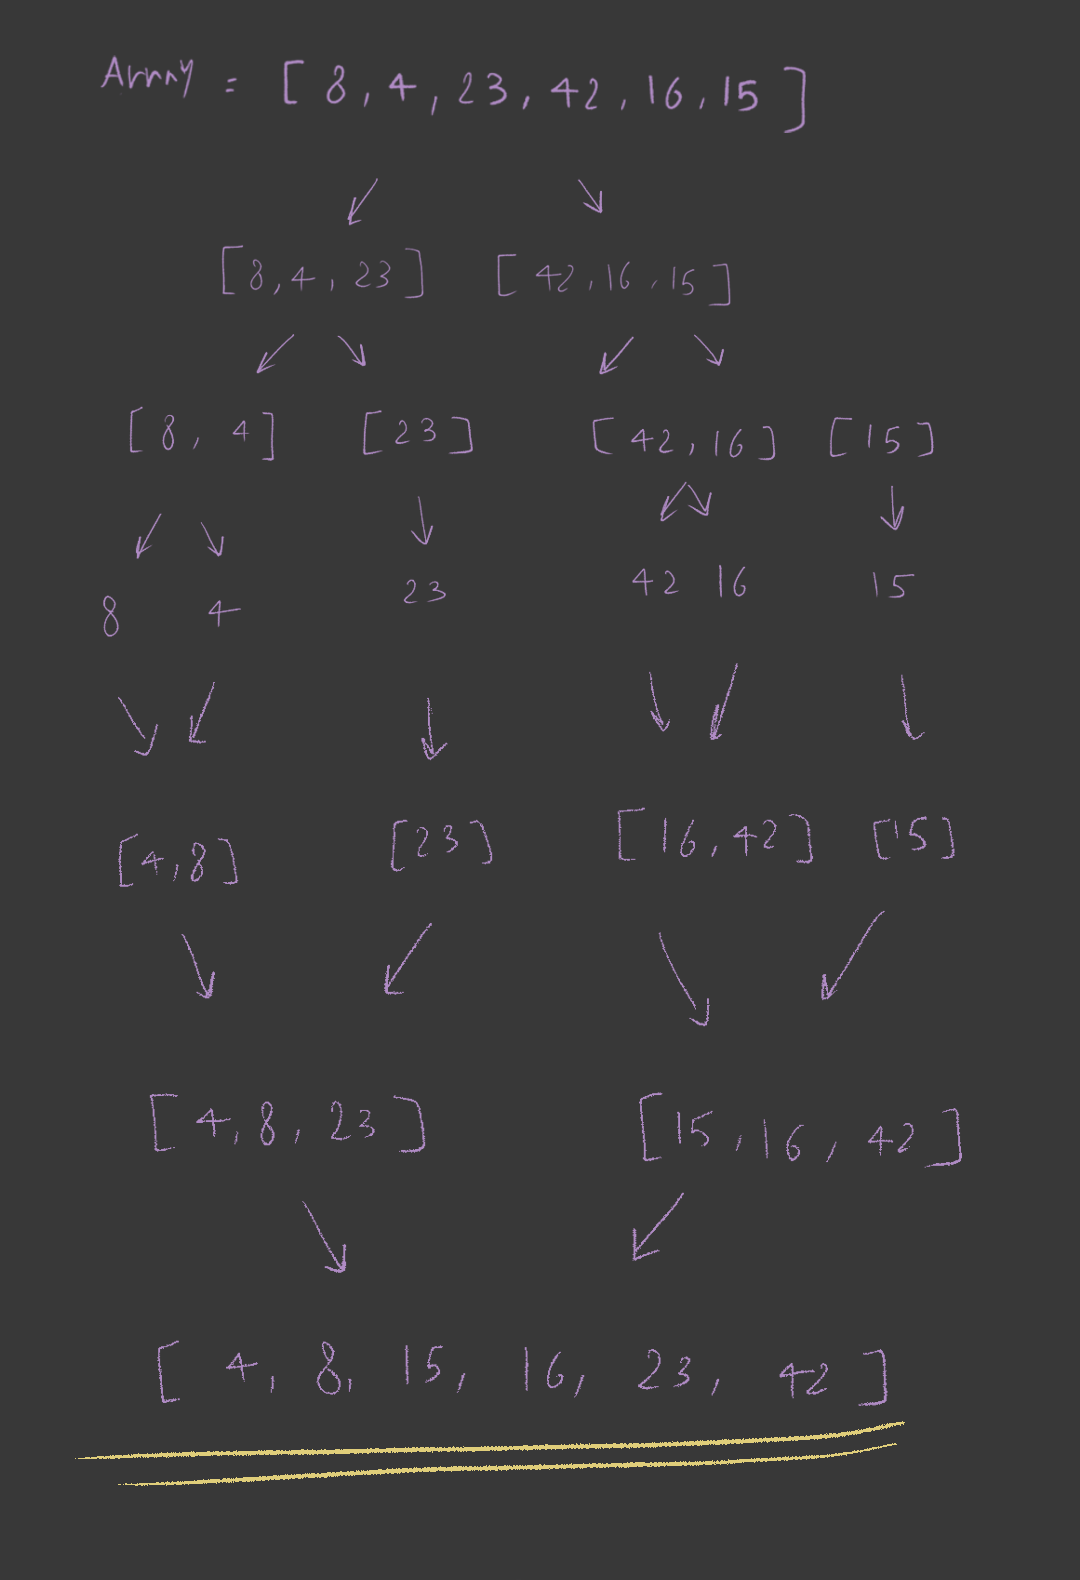 Array = [ 8, 4, 23, 42, 16, 15 ]
[8, 4, 23] [42, 16, 15]
[8, 4] [23] [42, 16] [15]
8 4 23 42 16 15
[4, 8] [23] [16, 42] [15]
[4, 8, 23] [15, 16, 42]
[ 4, 8, 15, 16, 23, 42 ]